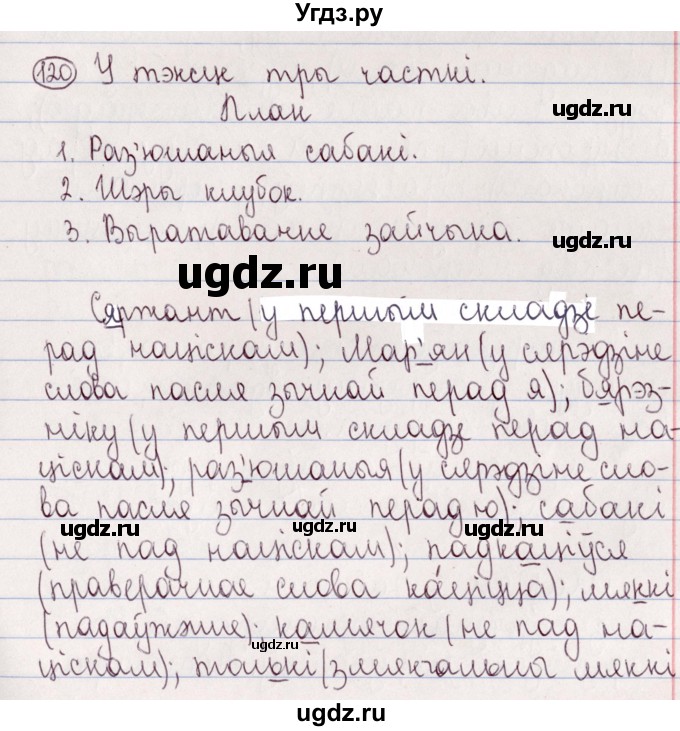 Угдз.ру
120 У тэксце тры часткі.
План
ugdz.ru
1. Раз'юшаныя сабакі.
2. Шэры клубок.
3. Выратаванне зайчыка.
ugdz.ru
ugdz.ru
Сяржант (у першым складзе пе-
рад націскам); Мар'ян (у сярэдзіне
слова пасля зычнай перад я); бярэз-
ніку (у першым складзе перад на-
ціскам); раз'юшаныя (у сярэдзіне сло-
ва пасля зычнай перад ю); сабакі
ugdz.ru ugdz.ru ugdz.ru
(не пад націскам); падкаціўся
(праверачнае слова каціцца); мяккі
(падаўжэнне); камячок (не пад на-
ціскам); толькі (змякчальны мяккі
ugdz.ru